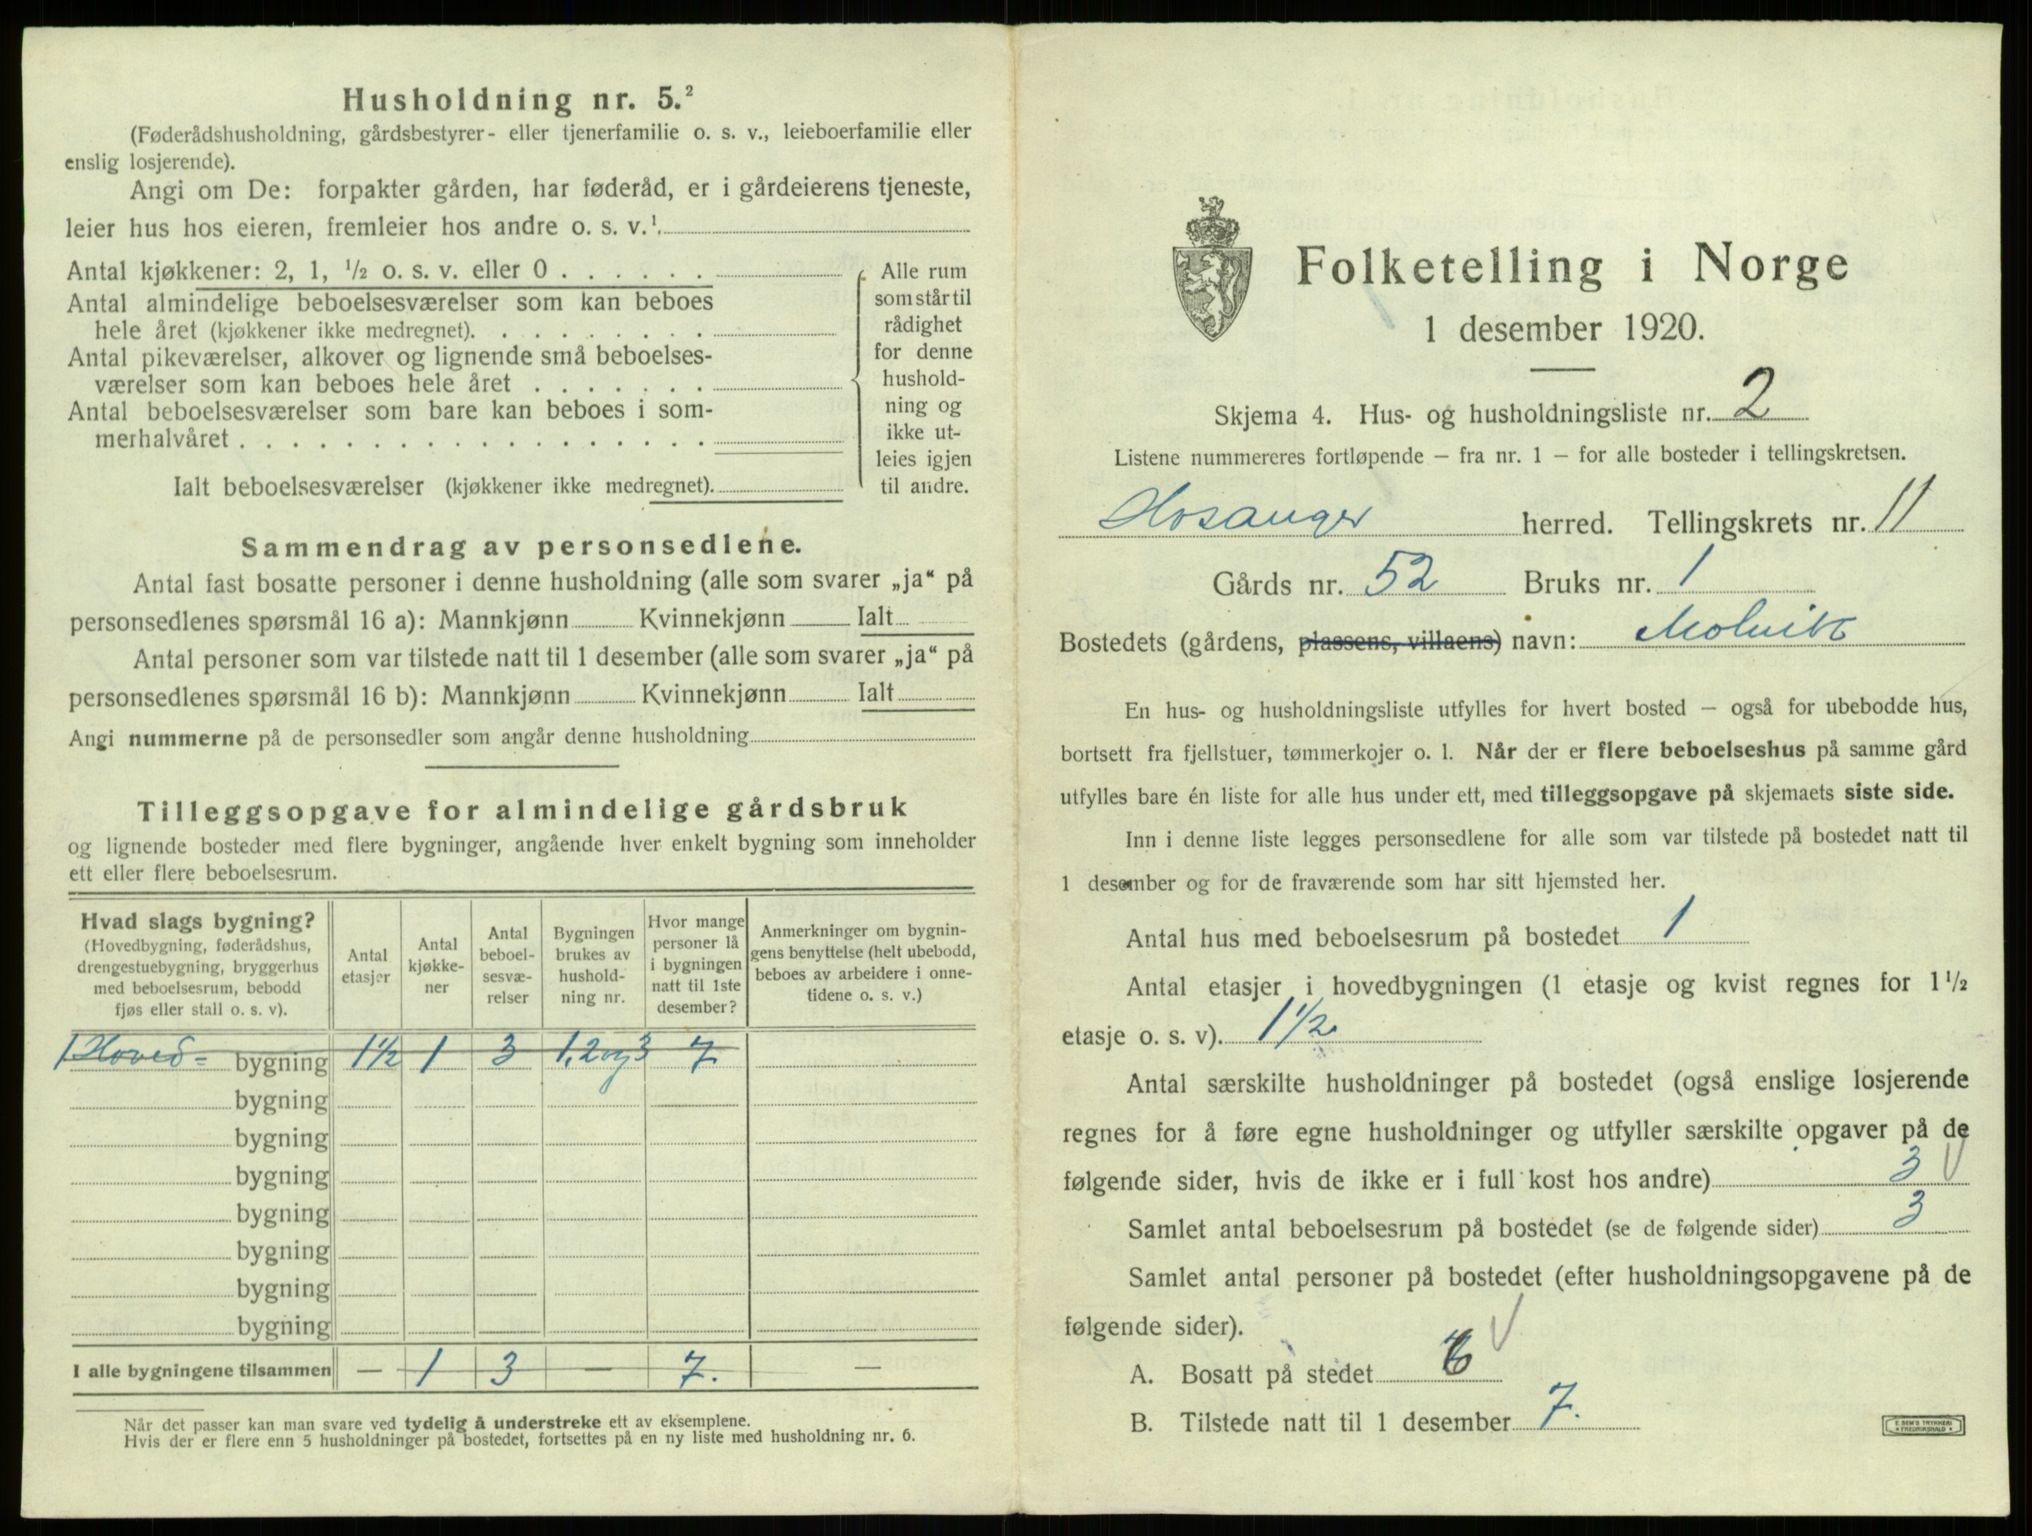 Husholdning nr. 5.²
(Føderådshusholdning, gårdsbestyrer- eller tjenerfamilie o. s. v., leieboerfamilie eller
enslig losjerende).
Angi om De: forpakter gården, har føderåd, er i gårdeierens tjeneste,
leier hus hos eieren, fremleier hos andre o. s. v.¹
Antal kjøkkener: 2, 1, ½ o. s. v. eller 0 . . . . . .
Antal almindelige beboelsesværelser som kan beboes
hele året (kjøkkener ikke medregnet). . . . . . . . .
Antal pikeværelser, alkover og lignende små beboelses-
værelser som kan beboes hele året . . . . . . .
Antal beboelsesværelser som bare kan beboes i som-
merhalvåret . . . . . . . . . . . . . . . . . .
Ialt beboelsesværelser (kjøkkener ikke medregnet).
Alle rum
som står til
rådighet
for denne
hushold-
ning og
ikke ut-
leies igjen
til andre.
Sammendrag av personsedlene.
Antal fast bosatte personer i denne husholdning (alle som svarer „ja“ på
personsedlenes spørsmål 16 a): Mannkjønn Kvinnekjønn Ialt
Antal personer som var tilstede natt til 1 desember (alle som svarer „ja“ på
personsedlenes spørsmål 16 b): Mannkjønn Kvinnekjønn Ialt
Angi nummerne på de personsedler som angår denne husholdning
Tilleggsopgave for almindelige gårdsbruk
og lignende bosteder med flere bygninger, angående hver enkelt bygning som inneholder
ett eller flere beboelsesrum.
Hvad slags bygning?
(Hovedbygning, føderådshus,
drengestuebygning, bryggerhus
med beboelsesrum, bebodd
fjøs eller stall o. s. v).
Antal
etasjer
Antal
kjøkke-
ner
Antal
beboel-
sesvæ-
relser
Bygningen
brukes av
hushold-
ning nr.
Hvor mange
personer lå
i bygningen
natt til 1ste
desember?
Anmerkninger om bygnin-
gens benyttelse (helt ubebodd,
beboes av arbeidere i onne-
tidene o. s. v.)
1 Hoved= bygning 1½ 1 3 1, 2 og 3 7
bygning
bygning
bygning
bygning
bygning
bygning
bygning
I alle bygningene tilsammen — 1 3 — 7. —
Når det passer kan man svare ved tydelig å understreke ett av eksemplene.
Hvis der er flere enn 5 husholdninger på bostedet, fortsettes på en ny liste med husholdning nr. 6.
Folketelling i Norge
1 desember 1920.
Skjema 4. Hus- og husholdningsliste nr. 2
Listene nummereres fortløpende – fra nr. 1 – for alle bosteder i tellingskretsen.
Hosanger herred. Tellingskrets nr. 11
Gårds nr. 52 Bruks nr. 1
Bostedets (gårdens, plassens, villaens) navn: Molvik
En hus- og husholdningsliste utfylles for hvert bosted – også for ubebodde hus,
bortsett fra fjellstuer, tømmerkojer o. l. Når der er flere beboelseshus på samme gård
utfylles bare én liste for alle hus under ett, med tilleggsopgave på skjemaets siste side.
Inn i denne liste legges personsedlene for alle som var tilstede på bostedet natt til
1 desember og for de fraværende som har sitt hjemsted her.
Antal hus med beboelsesrum på bostedet 1
Antal etasjer i hovedbygningen (1 etasje og kvist regnes for 1½
etasje o. s. v). 1½
Antal særskilte husholdninger på bostedet (også enslige losjerende
regnes for å føre egne husholdninger og utfyller særskilte opgaver på de
følgende sider, hvis de ikke er i full kost hos andre) 3
Samlet antal beboelsesrum på bostedet (se de følgende sider) 3
Samlet antal personer på bostedet (efter husholdningsopgavene på de
følgende sider).
A. Bosatt på stedet
B. Tilstede natt til 1 desember 7.
E. SEM'S TRYKKERI
FREDRIKSHALD